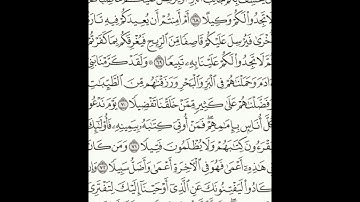 تَجِدُوا۟ لَكُمْ وَكِيلًا ٦٨ أَمْ أَمِنتُمْ أَن يُعِيدَكُمْ فِيهِ تَارَةً
أُخْرَىٰ فَيُرْسِلَ عَلَيْكُمْ قَاصِفًا مِّنَ ٱلرِّيحِ فَيُغْرِقَكُم بِمَا كَفَرْتُمْ
ثُمَّ لَا تَجِدُوا۟ لَكُمْ عَلَيْنَا بِهِۦ تَبِيعًا ٦٩ ۞ وَلَقَدْ كَرَّمْنَا بَنِىٓ
ءَادَمَ وَحَمَلْنَٰهُمْ فِى ٱلْبَرِّ وَٱلْبَحْرِ وَرَزَقْنَٰهُم مِّنَ ٱلطَّيِّبَٰتِ
وَفَضَّلْنَٰهُمْ عَلَىٰ كَثِيرٍ مِّمَّنْ خَلَقْنَا تَفْضِيلًا ٧٠ يَوْمَ نَدْعُوا۟
كُلَّ أُنَاسٍۭ بِإِمَٰمِهِمْ ۖ فَمَنْ أُوتِىَ كِتَٰبَهُۥ بِيَمِينِهِۦ فَأُو۟لَٰٓئِكَ
يَقْرَءُونَ كِتَٰبَهُمْ وَلَا يُظْلَمُونَ فَتِيلًا ٧١ وَمَن كَانَ
فِى هَٰذِهِۦٓ أَعْمَىٰ فَهُوَ فِى ٱلْءَاخِرَةِ أَعْمَىٰ وَأَضَلُّ سَبِيلًا ٧٢ وَإِن
كَادُوا۟ لَيَفْتِنُونَكَ عَنِ ٱلَّذِىٓ أَوْحَيْنَآ إِلَيْكَ لِتَفْتَرِىَ